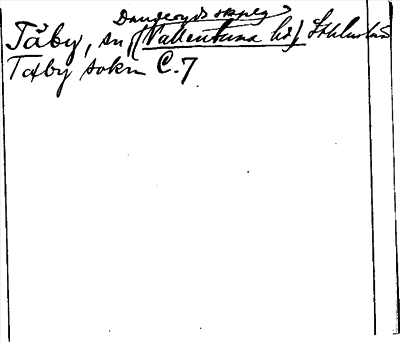 Danderyds skeppslag
Täby, sn (Vallentuna hd) Sthlms län
Täby sokn C.7